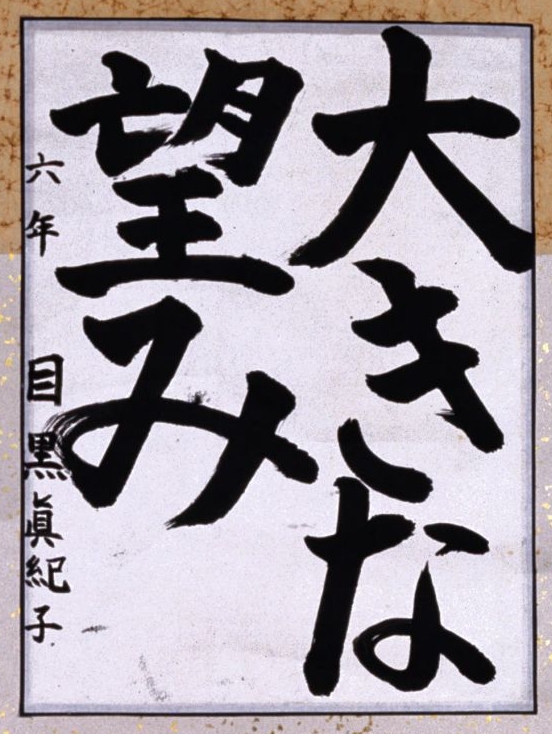 大きな
望み
六年 目黒眞紀子